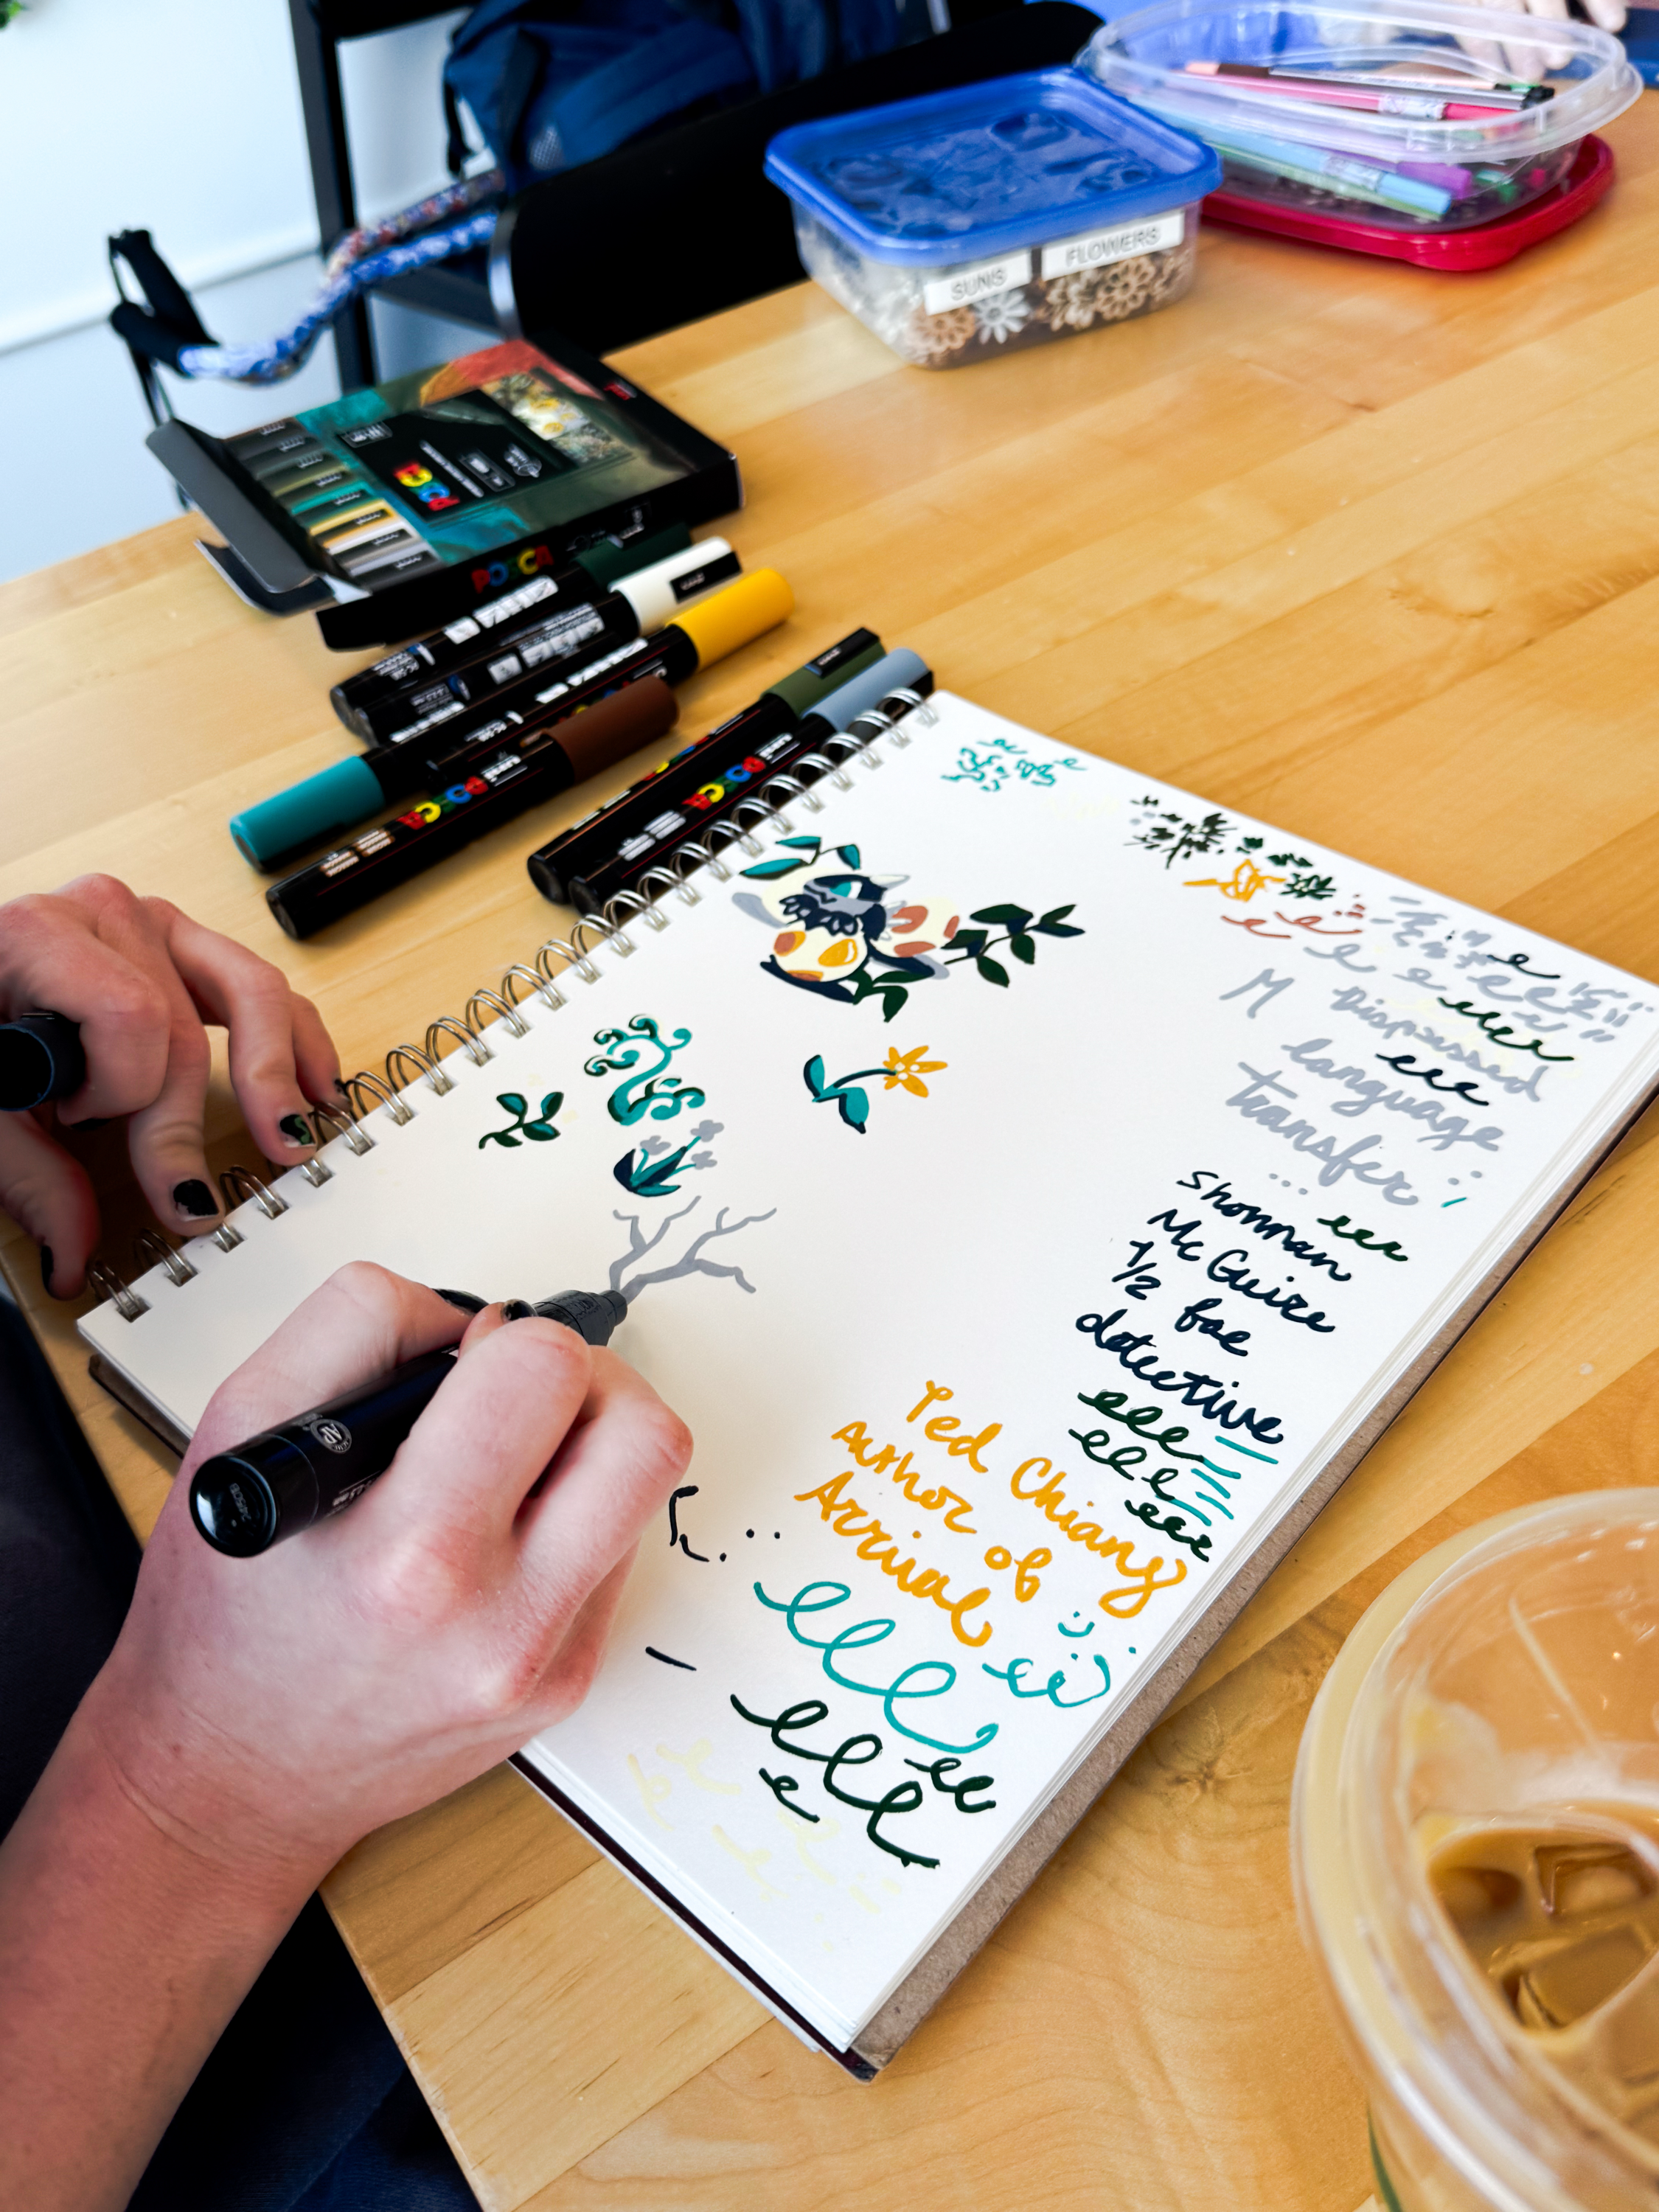 SUNS
FLOWERS
POSCA
POSCA
POSCA
POSCA
M
Dispassed
language
transfer
...
Shonman
McGuire
1/2 fae
detective
Ted Chiang
Author of
Arrival